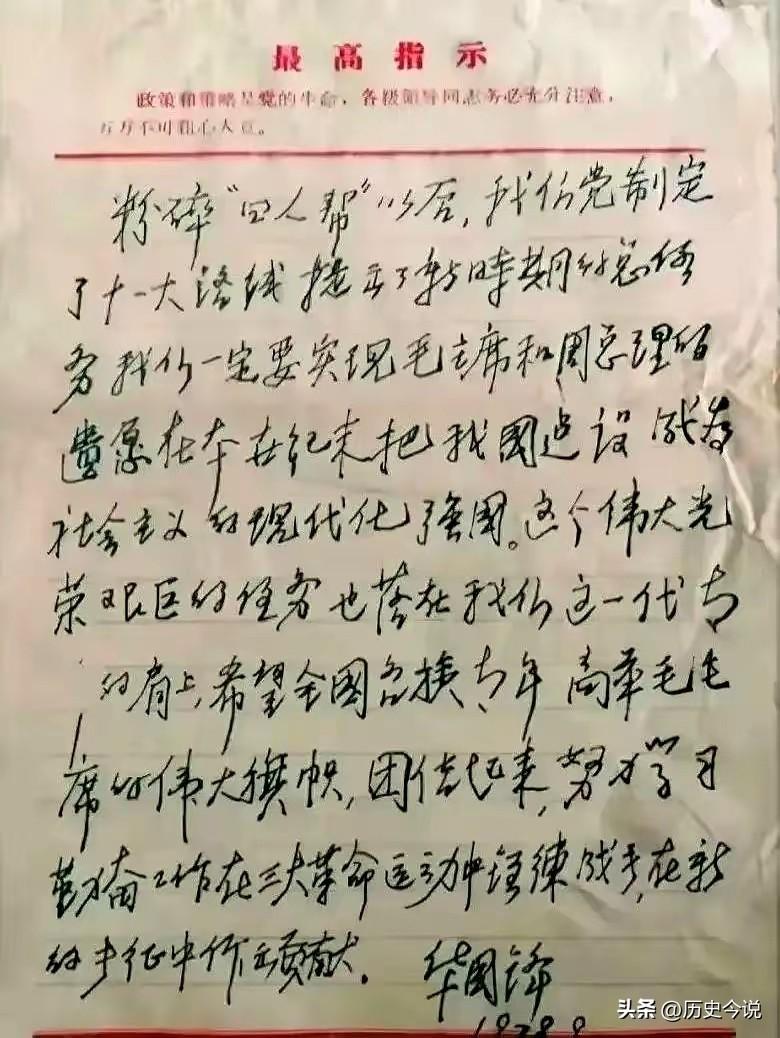 最高指示
政策和策略是党的生命，各级领导同志务必充分注意，
万万不可粗心大意。
粉碎“四人帮”以后，我们党制定
了十一大路线提出了新時期的总任
务我们一定要实现毛主席和周总理的
遗愿在本世纪末把我國建设成为
社会主义的现代化强國。这个伟大光
荣艰巨的任务也落在我们这一代青
的肩上，希望全國各族青年高举毛主
席的伟大旗帜，团结起来，努力学习
勤奋工作在三大革命运动中锻練成长，在新
的长征中作出贡献。 华國锋
1978.9
头条 @历史今说